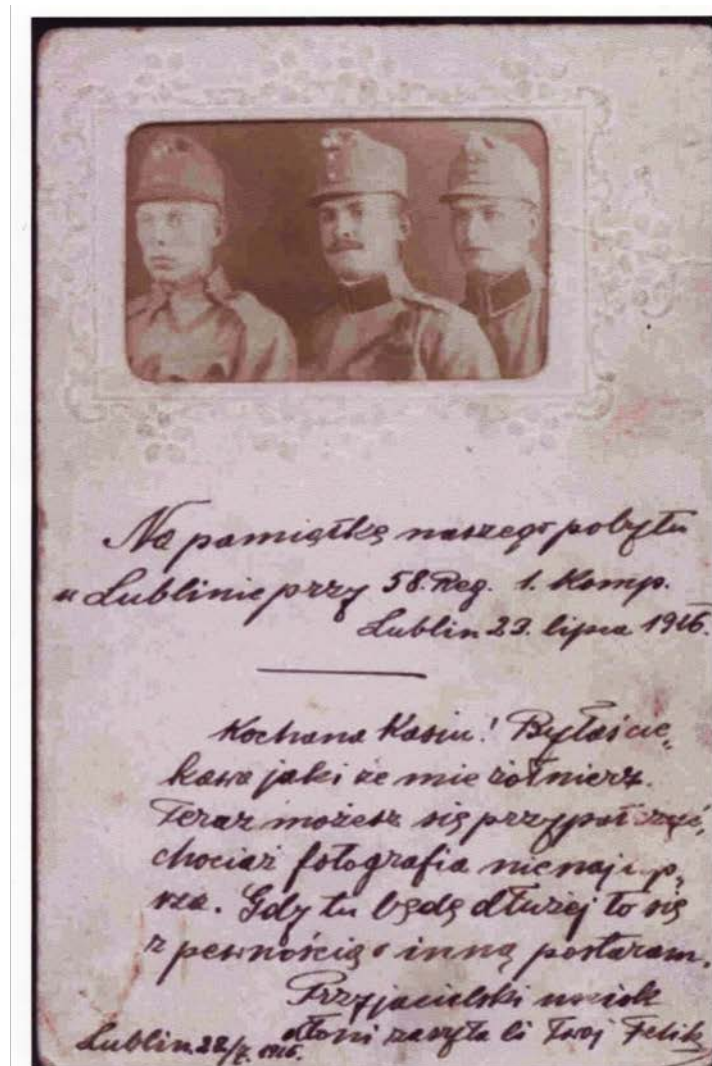 Na pamiątkę naszego pobytu
w Lublinie przy 58. Reg. 1. Komp.
Lublin 23. lipca 1916.
Kochana Kasiu! Byłaś cie-
kawa jaki ze mie żołnierz.
Teraz możesz się przypatrzyć,
chociaż fotografia nienajlep-
sza. Gdy tu będę dłużej to się
z pewnością o inną postaram.
Przyjacielski uścisk
dłoni zasyła Ci Twój Felik
Lublin 22/7. 1916.